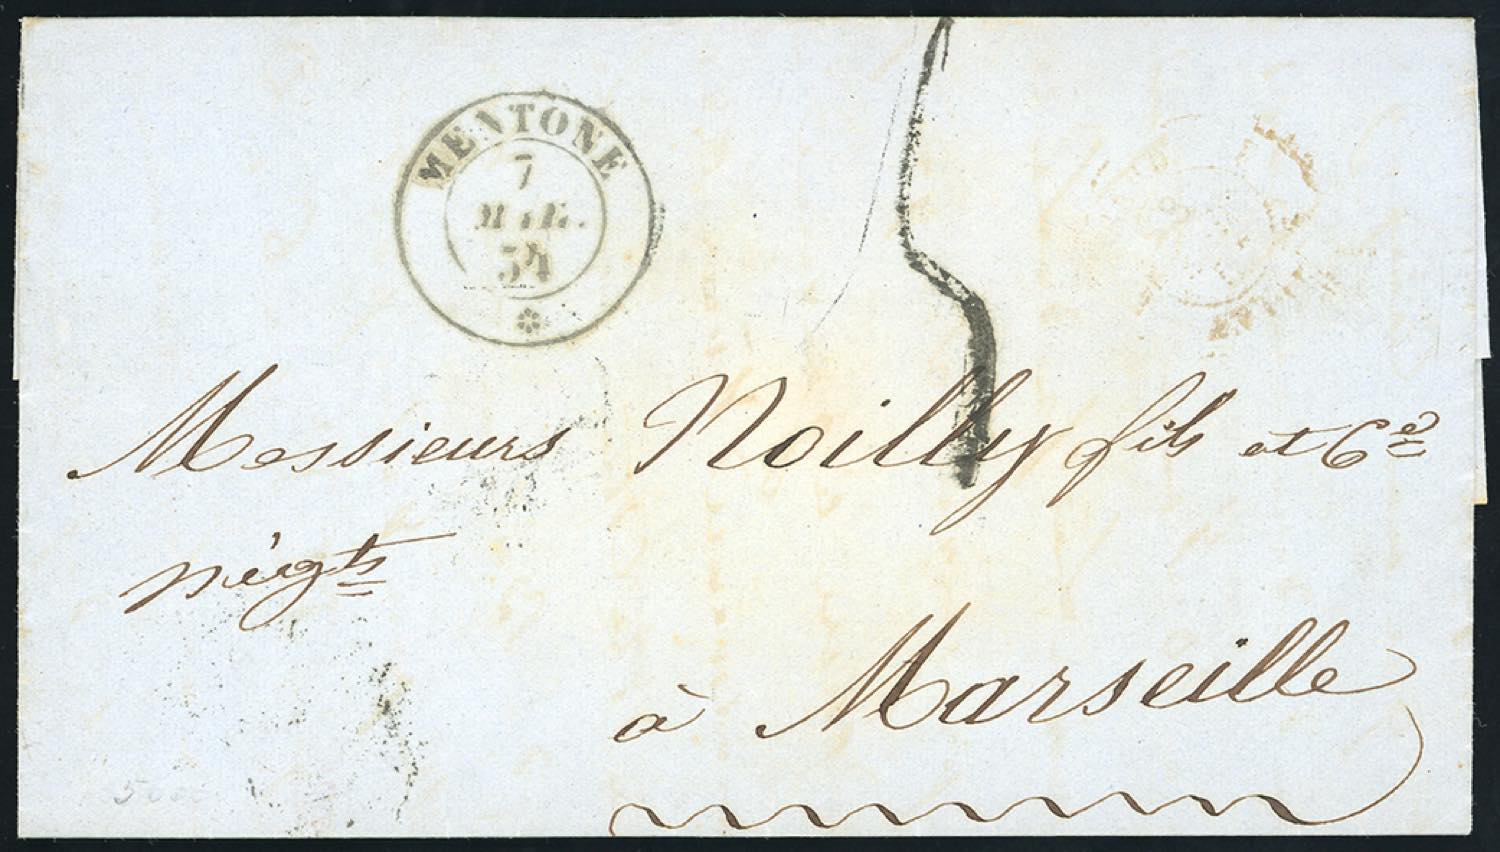 MENTONE
7
MAR.
54
5
Messieurs Noilly fils et Cie
négts
à Marseille